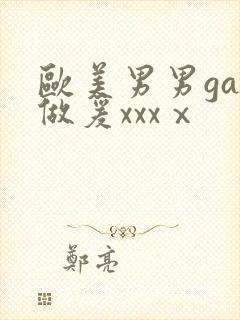 歐美男男ga
做爰xxxⅹ
鄭亮